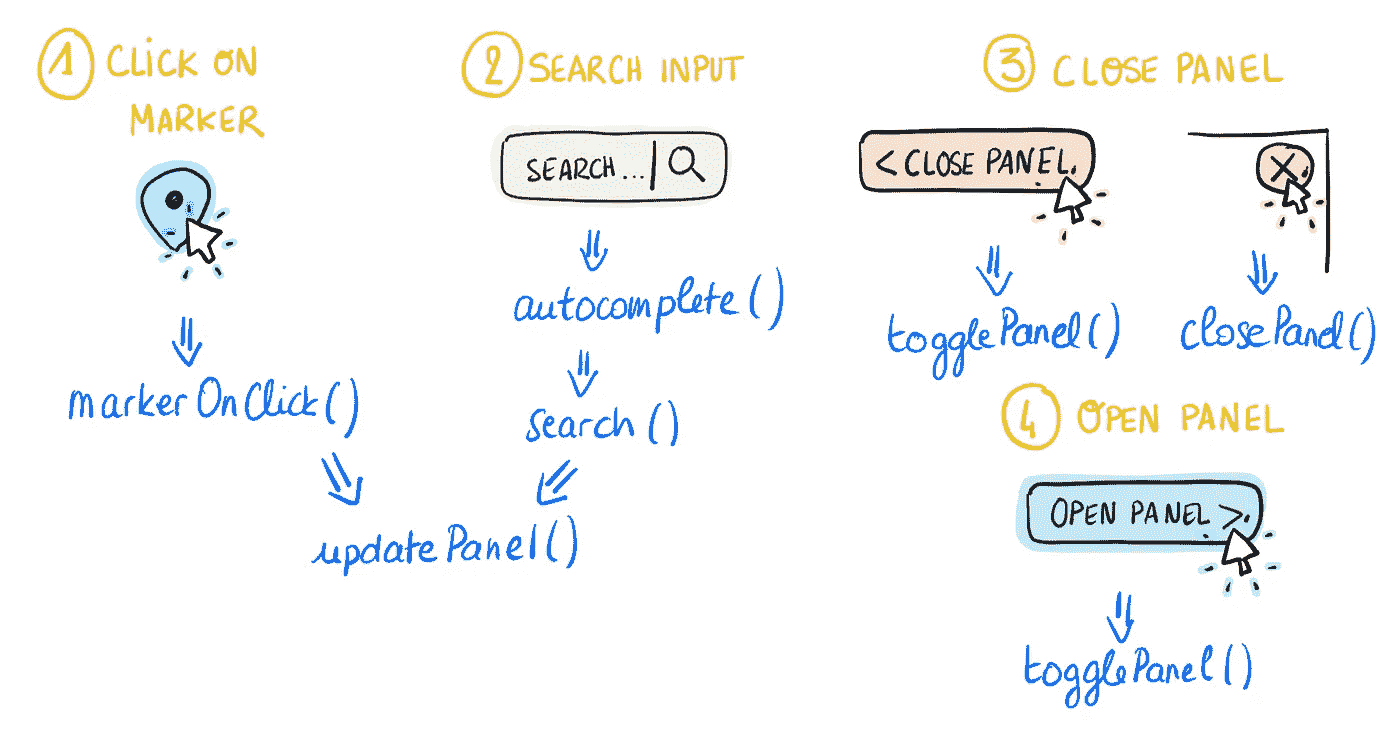 1 CLICK ON
MARKER
markerOnClick()
2 SEARCH INPUT
SEARCH...
autocomplete()
search()
updatePanel()
3 CLOSE PANEL
< CLOSE PANEL
X
togglePanel()
closePanel()
4 OPEN PANEL
OPEN PANEL >
togglePanel()